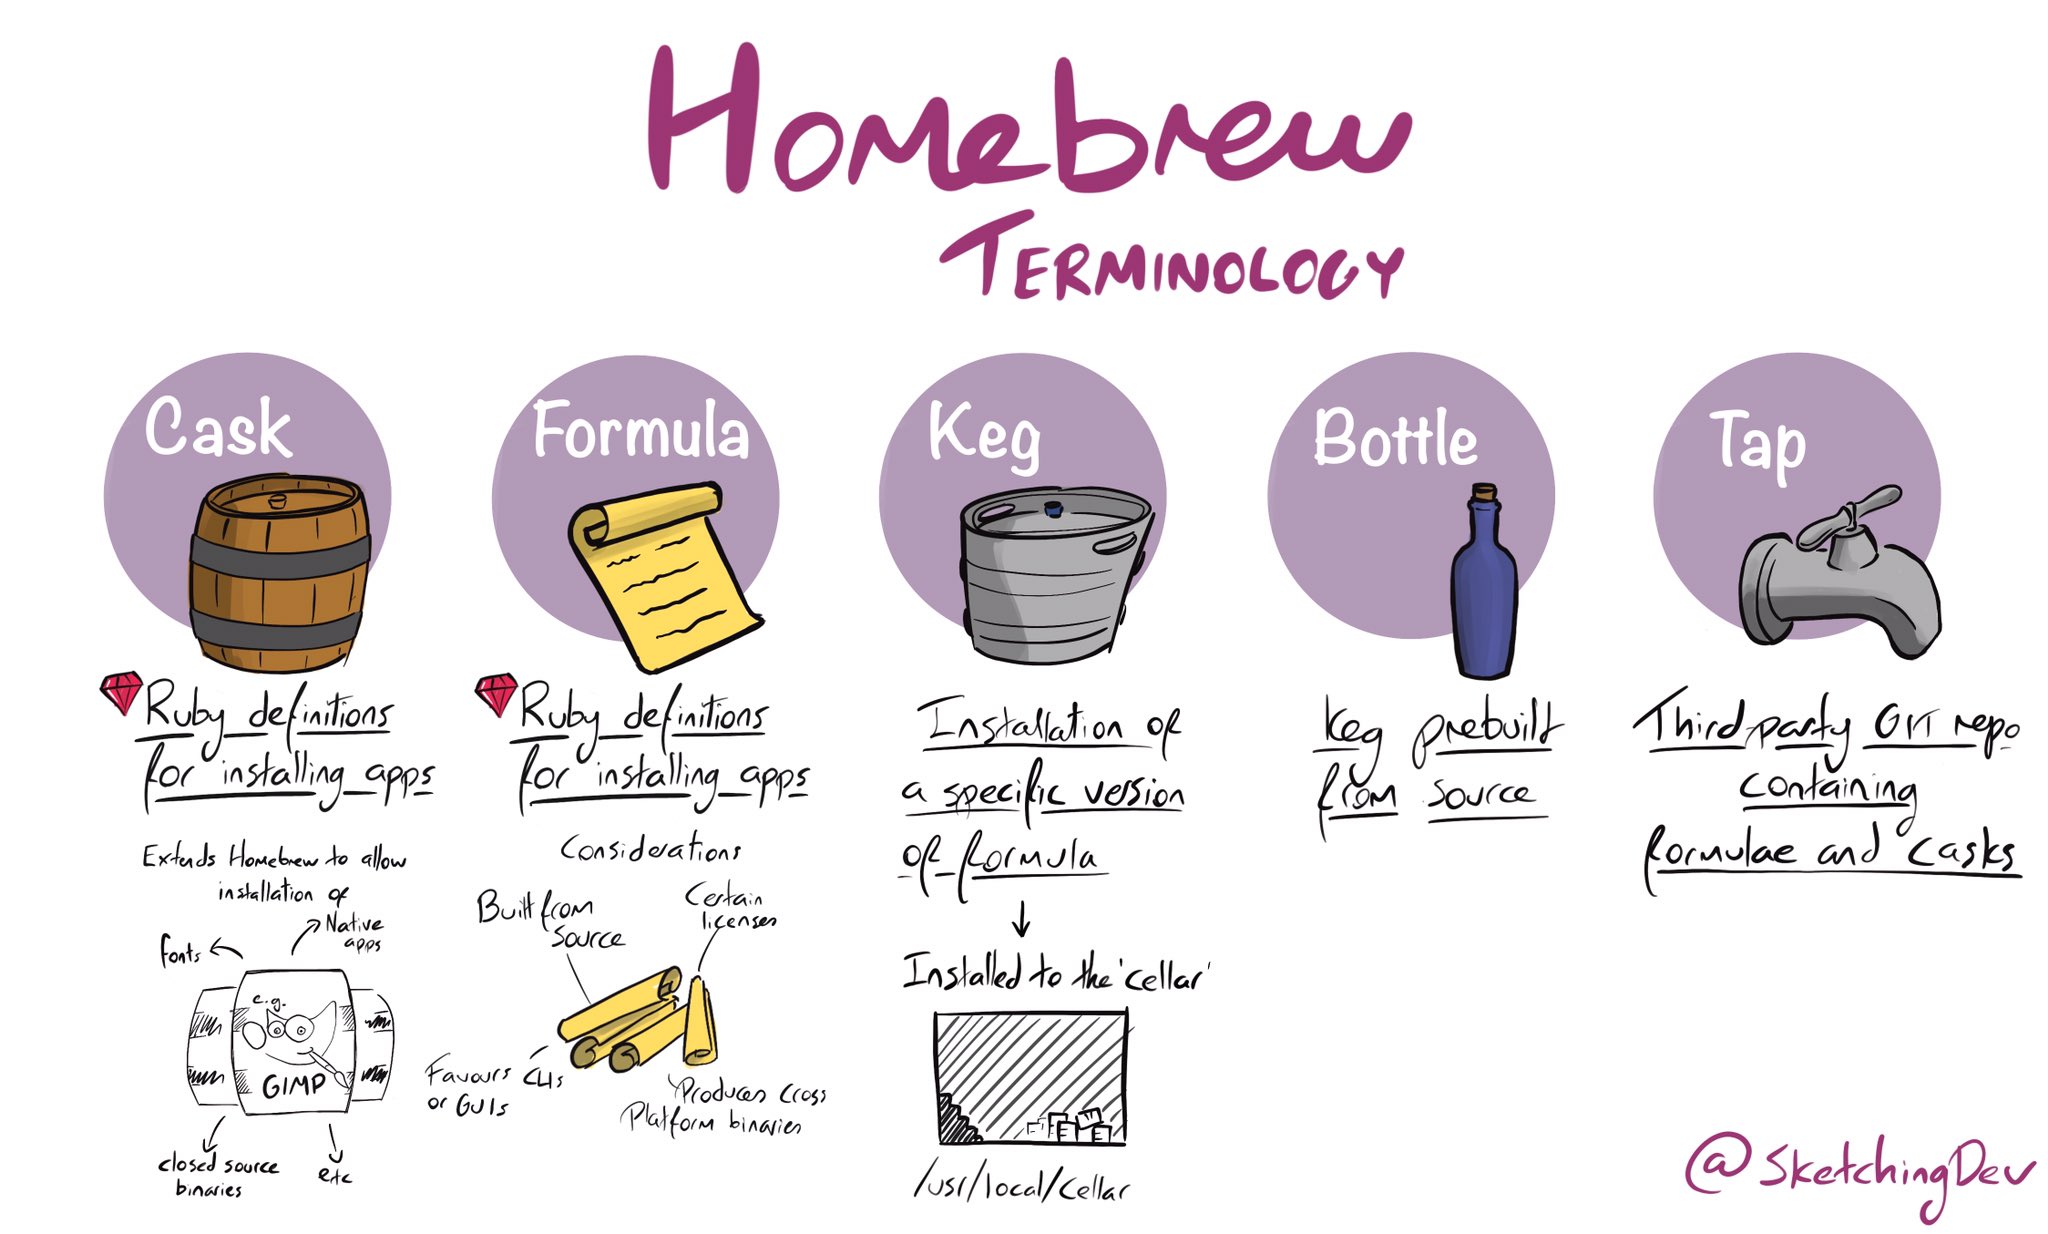 Homebrew
TERMINOLOGY
Cask
Ruby definitions
for installing apps
Extends Homebrew to allow
installation of
Native
apps
fonts
e.g.
GIMP
closed source
binaries
etc
Formula
Ruby definitions
for installing apps
Considerations
Built from
source
Certain
licenses
Favours CLIs
or GUIs
Produces cross
Platform binaries
Keg
Installation of
a specific version
of formula
Installed to the 'cellar'
/usr/local/Cellar
Bottle
Keg prebuilt
from source
Tap
Third-party GIT repo
containing
formulae and casks
@SketchingDev